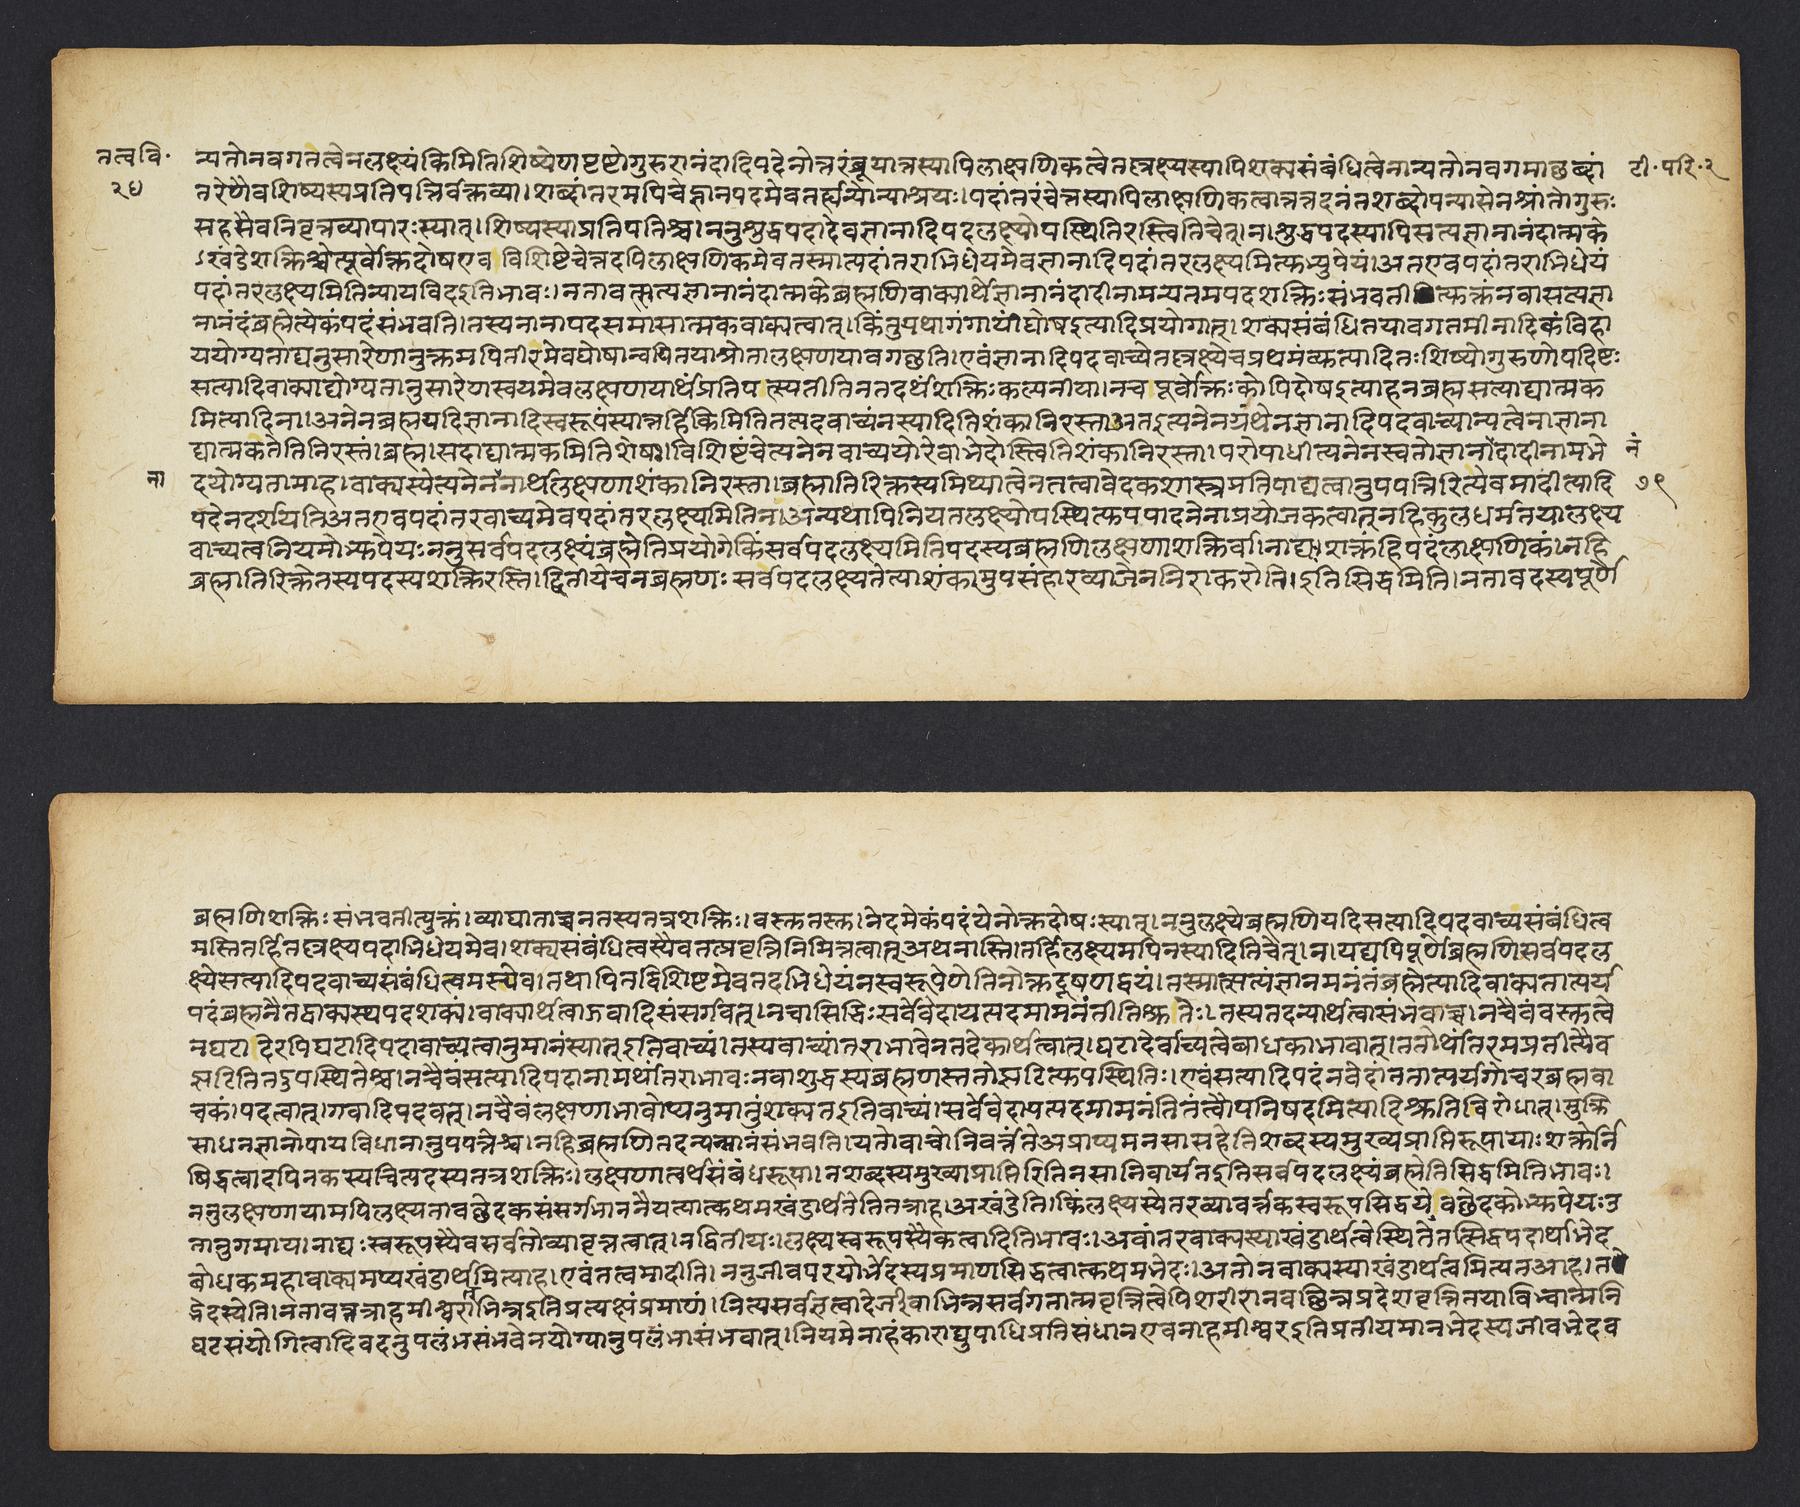 तत्ववि॰
२४
टी॰परि॰२
न्यतोनवगतत्वेनलक्ष्यंकिमितिशिष्येणपृष्टोगुरुरानंदादिपदेनोत्तरंब्रूयात्तस्यापिलाक्षणिकत्वेनतल्लक्ष्यस्यापिशक्यसंबंधित्वेनान्यतोनवगमाछब्दां
तरेणैवशिष्यस्यप्रतिपत्तिर्वक्तव्या।शब्दांतरमपिचेज्ज्ञानपदमेवतर्ह्यन्योन्याश्रयः।पदांतरंचेत्तस्यापिलाक्षणिकत्वात्तत्तदनंतशब्दोपन्यासेनश्रांतोगुरुः
सहसैवनिवृत्तव्यापारःस्यात्।शिष्यस्याप्रतिपतिश्च।ननुशुद्धपदादेवज्ञानादिपदलक्ष्योपस्थितिरस्त्वितिचेत्।न।शुद्धपदस्यापिसत्यज्ञानानंदात्मके
ऽखंडेशक्तिश्चेत्पूर्वोक्तदोषएव विशिष्टेचेत्तदपिलाक्षणिकमेवतस्मात्पदांतराभिधेयमेवज्ञानादिपदांतरलक्ष्यमित्यभ्युपेयं।अतएवपदांतराभिधेयं
पदांतरलक्ष्यमितिन्यायविदइतिभावः।नतावत्सत्यज्ञानानंदात्मकेब्रह्मणिवाक्यार्थेज्ञानानंदादीनामन्यतमपदशक्तिःसंभवतीत्युक्तंनवासत्यज्ञा
नानंदंब्रह्मेत्येकंपदंसंभवति।तस्यनानापदसमासात्मकवाक्यत्वात्।किंतुयथागंगायांघोषइत्यादिप्रयोगात्।शक्यसंबंधितयावगतमीनादिकंविहा
ययोग्यताद्यनुसारेणानुक्तमपितीरमेवघोषान्वयितयाश्रोतालक्षणयावगछति।एवंज्ञानादिपदवाच्येतल्लक्ष्येचप्रथमंव्युत्पादितःशिष्योगुरुणोपदिष्टः
सत्यादिवाक्याद्योग्यतानुसारेणस्वयमेवलक्षणयार्थंप्रतिपत्स्यतीतिनतदर्थंशक्तिःकल्पनीया।नचपूर्वोक्तःकोपिदोषइत्याहनब्रह्मसत्याद्यात्मक
मित्यादिना।अनेनब्रह्मयदिज्ञानादिस्वरूपंस्यात्तर्हिकिमितितत्पदवाच्यंनस्यादितिशंकानिरस्ताअतइत्यनेनग्रंथेनज्ञानादिपदवाच्यान्यत्वेनाज्ञाना
द्यात्मकतेतिनिरस्तं।ब्रह्म।सदाद्यात्मकमितिशेषः।विशिष्टंचेत्यनेनवाच्ययोरेवाभेदोस्त्वितिशंकानिरस्ता।परोपाधीत्यनेनस्वतोज्ञानांदादीनामभे
नं
ना
दयोग्यतामाह।वाक्यस्येत्यनेननार्थलक्षणाशंकानिरस्ता।ब्रह्मातिरिक्तस्यमिथ्यात्वेनतत्वावेदकशास्त्रप्रतिपाद्यत्वानुपपत्तिरित्येवमादीत्यादि
७९
पदेनदर्शयतिअतएवपदांतरवाच्यमेवपदांतरलक्ष्यमितिन।अन्यथापिनियतलक्ष्योपस्थित्युपपादनेनाप्रयोजकत्वात्नहिकुलधर्मतयालक्ष्य
वाच्यत्वनियमोभ्युपेयःननुसर्वपदलक्ष्यंब्रह्मेतिप्रयोगेकिंसर्वपदलक्ष्यमितिपदस्यब्रह्मणिलक्षणाशक्तिर्वा।नाद्यः।शक्तंहिपदंलाक्षणिकं।नहि
ब्रह्मातिरिक्तेतस्यपदस्यशक्तिरस्ति।द्वितीयेचनब्रह्मणःसर्वपदलक्ष्यतेत्याशंकामुपसंहारव्याजेननिराकरोति।इतिसिद्धमिति।नतावदस्यपूर्णे
ब्रह्मणिशक्तिःसंभवतीत्युक्तं।व्याघाताच्चनतस्यतत्रशक्तिः।वस्तुतस्तु।नेदमेकंपदंयेनोक्तदोषःस्यात्।ननुलक्ष्येब्रह्मणियदिसत्यादिपदवाच्यसंबंधित्व
मस्तितर्हितल्लक्ष्यपदाभिधेयमेव।शक्यसंबंधित्वस्यैवतत्प्रवृत्तिनिमित्तत्वात्अथनास्ति।तर्हिलक्ष्यमपिनस्यादितिचेत्।न।यद्यपिपूर्णेब्रह्मणिसर्वपदल
क्ष्येसत्यादिपदवाच्यसंबंधित्वमस्त्येव।तथापितद्विशिष्टमेवतदभिधेयंनस्वरूपेणेतिनोक्तदूषणद्वयं।तस्मात्सत्यंज्ञानमनंतंब्रह्मेत्यादिवाक्यतात्पर्य
पदंब्रह्मनैतद्वाक्यस्थपदशक्यं।वाक्यार्थत्वाज्जवादिसंसर्गवत्।नचासिद्धिःसर्वेवेदायत्पदमामनंतीतिश्रुतेः।तस्यतदन्यार्थत्वासंभवाच्च।नचैवंवस्तुत्वे
नघटादेरपिघटादिपदावाच्यत्वानुमानंस्यात्इतिवाच्यं।तस्यवाच्यांतराभावेनतदेकार्थत्वात्।घटादेर्वाच्यत्वेबाधकाभावात्।ततोर्थांतरमप्रतीत्यैव
झटितितदुपस्थितेश्च।नचैवंसत्यादिपदानामर्थांतराभावःनवाशुद्धस्यब्रह्मणस्ततोझटित्युपस्थितिः।एवंसत्यादिपदंनवेदांततात्पर्यगोचरब्रह्मवा
चकं।पदत्वात्।गवादिपदवत्।नचैवंलक्षणाभावोप्यनुमातुंशक्यतइतिवाच्यं।सर्वेवेदायत्पदमामनंतितंत्वौपनिषदमित्यादिश्रुतिविरोधात्।मुक्ति
साधनज्ञानोपायविधानानुपपत्तेश्च।नहिब्रह्मणितदन्यन्मानंसंभवति।यतोवाचोनिवर्त्तंतेअप्राप्यमनसासहेतिशब्दस्यमुख्यप्राप्तिरूपायाःशक्तेर्नि
षिद्धत्वादपिनकस्यचित्पदस्यतत्रशक्तिः।लक्षणात्वर्थसंबंधरूपा।नशब्दस्यमुख्याप्राप्तिरितिनसानिवार्यतइतिसर्वपदलक्ष्यंब्रह्मेतिसिद्धमितिभावः।
ननुलक्षणायामपिलक्ष्यतावच्छेदकसंसर्गभाननैयत्यात्कथमखंडार्थतेतितत्राह।अखंडेति।किंलक्ष्यस्येतरव्यावर्त्तकस्वरूपसिद्धयेवछेदकोभ्युपेयःउ
तानुगमाय।नाद्यःस्वरूपस्यैवसर्वतोव्यावृत्तत्वात्।नद्वितीयः।लक्ष्यस्वरूपस्यैकत्वादितिभावः।अवांतरवाक्यस्याखंडार्थत्वेस्थितेतत्सिद्धपदार्थाभेद
बोधकमहावाक्यमप्यखंडार्थमित्याह।एवंतत्वमादीति।ननुजीवपरयोर्भेदस्यप्रमाणसिद्धत्वात्कथमभेदः।अतोनवाक्यस्याखंडार्थत्वमित्यतआह।तद्
भेदस्येति।नतावन्नाहमीश्वरोभिन्नइतिप्रत्यक्षंप्रमाणं।नित्यसर्वज्ञत्वादेर्जीवाभिन्नसर्वगतात्मवृत्तित्वेपिशरीरानवच्छिन्नप्रदेशवृत्तितयाविश्वात्मनि
घटसंयोगित्वादिवदनुपलंभसंभवेनयोग्यानुपलंभासंभवात्।नियमेनाहंकाराद्युपाधिप्रतिसंधानएवनाहमीश्वरइतिप्रतीयमानभेदस्यजीवभेदव